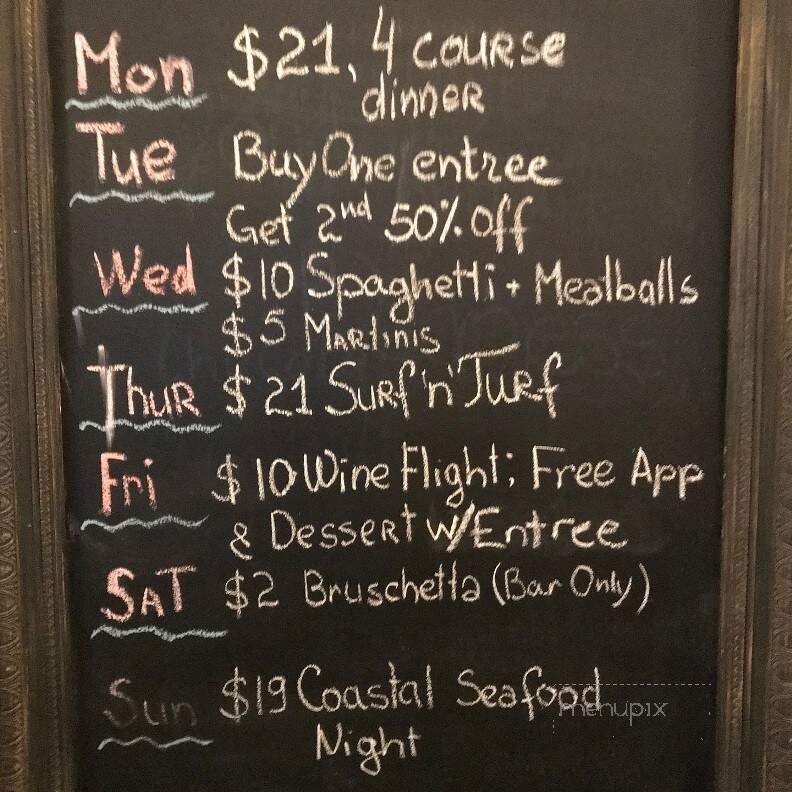 Mon $21, 4 course
dinner
Tue Buy One entree
Get 2nd 50% off
Wed $10 Spaghetti + Meatballs
$5 Martinis
Thur $21 Surf 'n' Turf
Fri $10 Wine Flight; Free App
& Dessert w/Entree
Sat $2 Bruschetta (Bar Only)
Sun $19 Coastal Seafood
Night
menupix